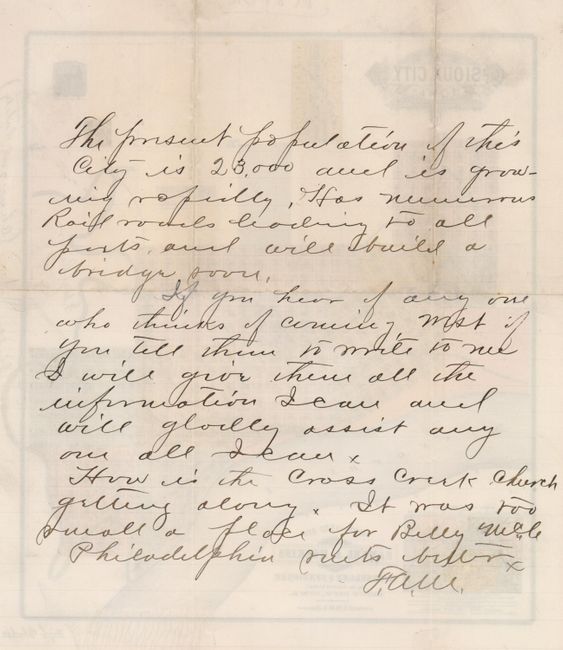 The present population of this
City is 23,000 and is grow-
ing rapidly, Has numerous
Rail roads leading to all
parts, and will build a
bridge soon.
If you hear of any one
who thinks of coming West if
you tell them to write to me
I will give them all the
information I can and
will gladly assist any
one all I can x
How is the Cross Creek Church
getting along. It was too
small a place for Billy
Philadelphia suits better x
SIOUX CITY